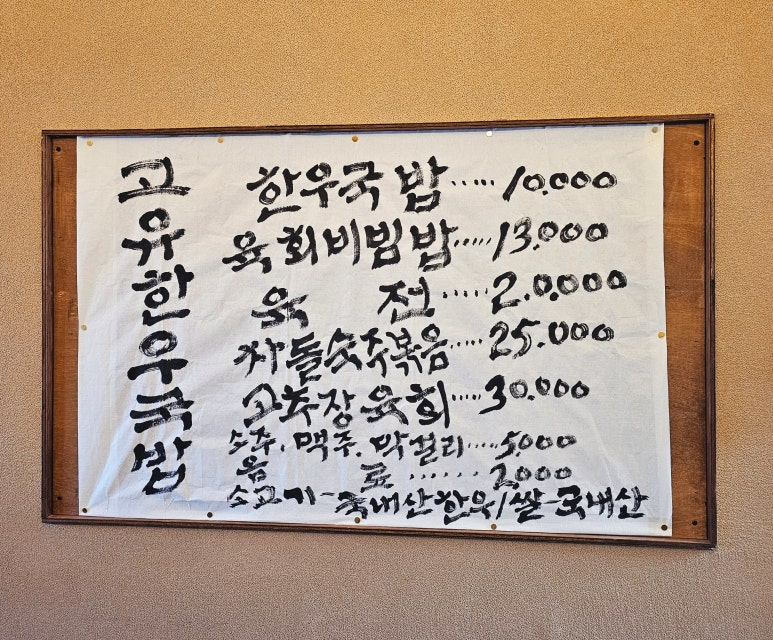 고유한우국밥
한우국밥 ····· 10.000
육회비빔밥 ····· 13.000
육 전 ····· 20.000
차돌숙주볶음 ····· 25.000
고추장육회 ····· 30.000
소주. 맥주. 막걸리 ····· 5.000
음 료 ······ 2.000
소고기-국내산한우/쌀-국내산